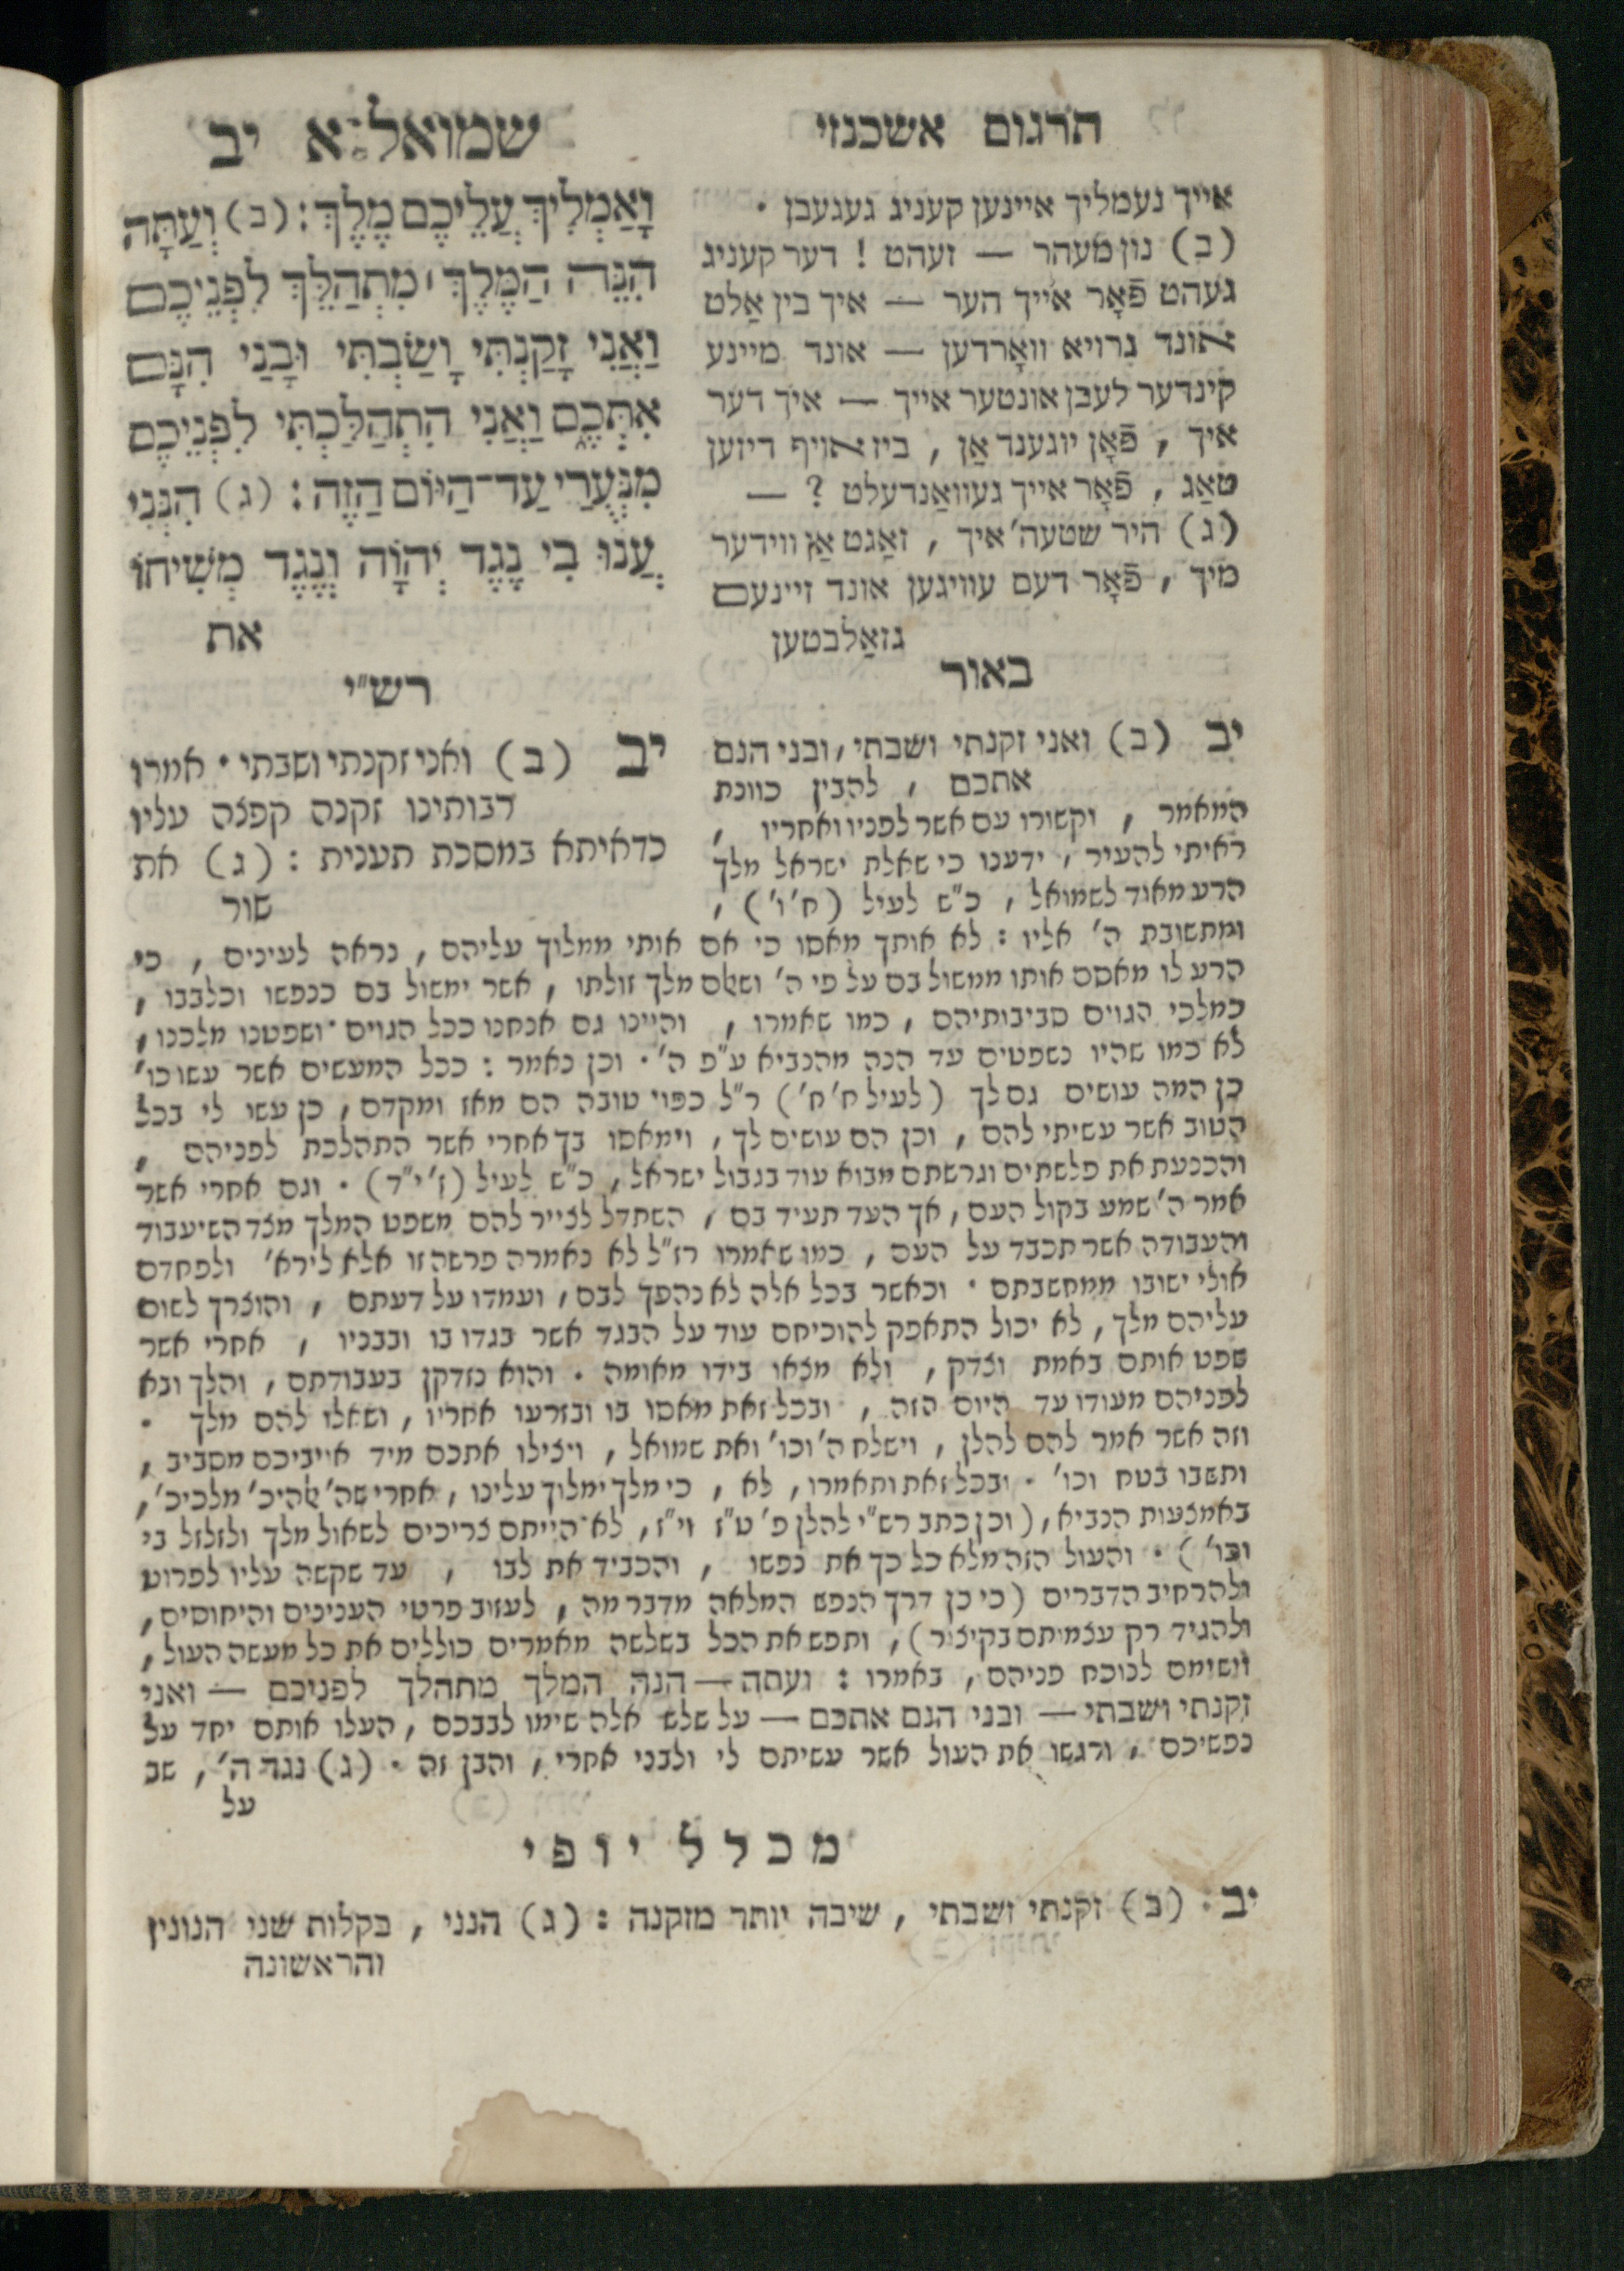 תרגום אשכנזי
אייך נעמליך איינען קעניג געגעבן .
(ב) נון מעהר — זעהט ! דער קעניג
געהט פֿאָר אייך הער — איך בין אַלט
אונד גרויא וואָרדען — אונד מיינע
קינדער לעבן אונטער אייך — איך דער
איך , פֿאָן יוגענד אַן , ביז אויף דיזען
טאַג , פֿאָר אייך געוואַנדעלט ? —
(ג) היר שטעה' איך , זאַגט אַן ווידער
מיך , פֿאָר דעם עוויגען אונד זיינעם
גזאַלבטען
שמואל א יב
וָאַמְלִיךְ עֲלֵיכֶם מֶלֶךְ: (ב) וְעַתָּה
הִנֵּה הַמֶּלֶךְ ׀ מִתְהַלֵּךְ לִפְנֵיכֶם
וַאֲנִי זָקַנְתִּי וָשַׂבְתִּי וּבָנַי הִנָּם
אִתְּכֶם וַאֲנִי הִתְהַלַּכְתִּי לִפְנֵיכֶם
מִנְּעֻרַי עַד־הַיּוֹם הַזֶּה: (ג) הִנְנִי
עֲנוּ בִי נֶגֶד יְהוָֹה וְנֶגֶד מְשִׁיחוֹ
את
באור
יב (ב) ואני זקנתי ושבתי, ובני הנם
אתכם , להבין כוונת
המאמר , וקשורו עם אשר לפניו ואחריו ,
ראיתי להעיר, ידענו כי שאלת ישראל מלך
הרע מאוד לשמואל, כ"ש לעיל (ח' ו') ,
רש"י
יב (ב) ואני זקנתי ושבתי . אמרו
רבותינו זקנה קפצה עליו
כדאיתא במסכת תענית : (ג) את
שור
ומתשובת ה' אליו : לא אותך מאסו כי אם אותי ממלוך עליהם , נראה לעינים , כי
הרע לו מאסם אותו ממשול בם על פי ה' ושׂום מלך זולתו , אשר ימשול בם כנפשו וכלבבו ,
כמלכי הגוים סביבותיהם , כמו שאמרו , והיינו גם אנחנו ככל הגוים . ושפטנו מלכנו,
לא כמו שהיו נשפטים עד הנה מהנביא ע"פ ה' . וכן נאמר : ככל המעשים אשר עשו כו'
כן המה עושים גם לך (לעיל ח' ח') ר"ל כפויי טובה הם מאז ומקדם, כן עשו לי בכל
הטוב אשר עשיתי להם , וכן הם עושים לך , וימאסו בך אחרי אשר התהלכת לפניהם ,
והכנעת את פלשתים וגרשתם מבוא עוד בגבול ישראל, כ"ש לעיל (ז' י"ד) . וגם אחרי אשר
אמר ה' שמע בקול העם, אך העד תעיד בם , השתדל לצייר להם משפט המלך מצד השיעבוד
והעבודה אשר תכבד על העם , כמו שאמרו רז"ל לא נאמרה פרשה זו אלא לירא' ולפחדם
אולי ישובו ממחשבתם . וכאשר בכל אלה לא נהפך לבם, ועמדו על דעתם , והוצרך לשום
עליהם מלך, לא יכול התאפק להוכיחם עוד על הבגד אשר בגדו בו ובבניו , אחרי אשר
שפט אותם באמת וצדק , ולא מצאו בידו מאומה . והוא נזדקן בעבודתם, והלך ובא
לפניהם מעודו עד היום הזה , ובכל זאת מאסו בו ובזרעו אחריו , ושאלו להם מלך .
וזה אשר אמר להם להלן , וישלח ה' וכו' ואת שמואל , ויצילו אתכם מיד אייביכם מסביב ,
ותשבו בטח וכו' . ובכל זאת ותאמרו, לא , כי מלך ימלוך עלינו , אחרי שה' אלהיכ' מלכיכ',
באמצעות הנביא, (וכן כתב רש"י להלן פ' ט"ז וי"ז, לא הייתם צריכים לשאול מלך ולזלזל בי
וכו') . והעול הזה מלא כל כך את נפשו , והכביד את לבו , עד שקשה עליו לפרוט
ולהרחיב הדברים (כי כן דרך הנפש המלאה מדבר מה, לעזוב פרטי הענינים והיחוסים,
ולהגיד רק עצמיתם בקיצור), ותפש את הכל בשלשה מאמרים כוללים את כל מעשה העול ,
וישימם לנוכח פניהם , באמרו : ועתה — הנה המלך מתהלך לפניכם — ואני
זקנתי ושבתי — ובני הנם אתכם — על שלש אלה שימו לבבכם , העלו אותם יחד על
נפשיכם , ורגשו את העול אשר עשיתם לי ולבני אחרי, והבן זה . (ג) נגד ה' , שב
על
מכלל יופי
יב . (ב) זקנתי ושבתי , שיבה יותר מזקנה : (ג) הנני , בקלות שני הנונין
והראשונה